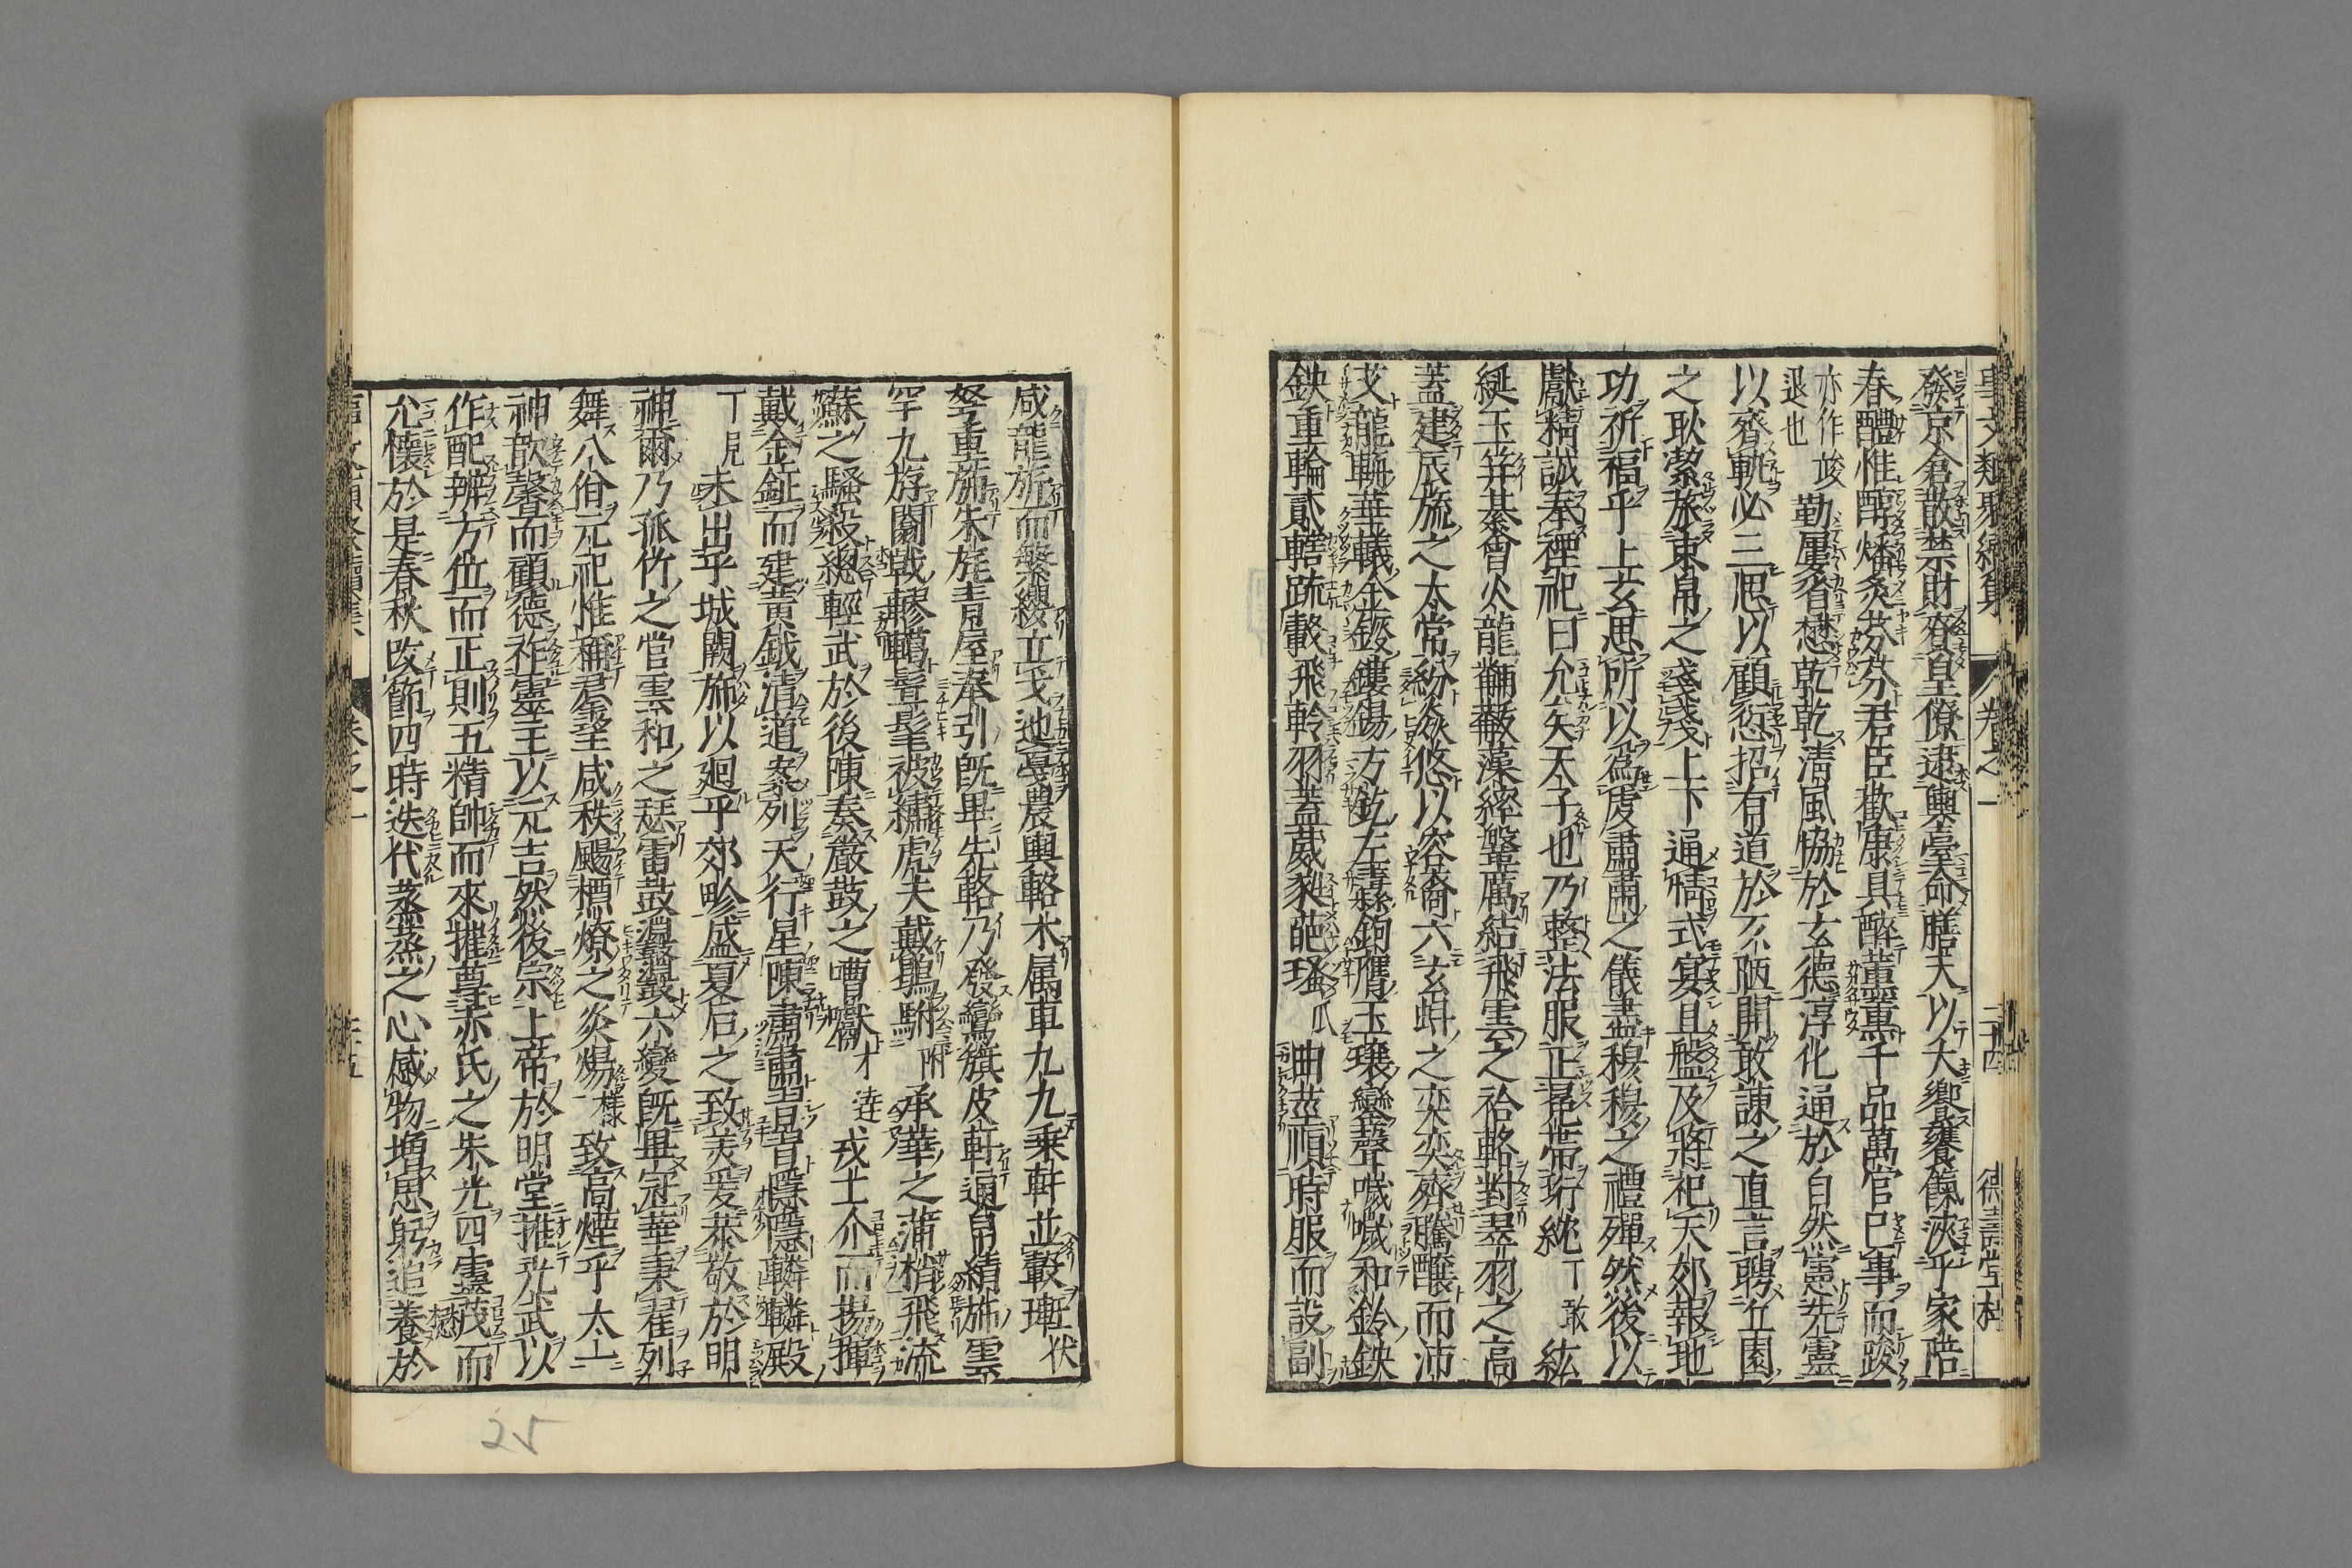 事文類聚續集 卷之一 二十四 德壽堂梓
發京倉散禁財賚皇僚逮輿臺命膳夫以大饗饔餼浹乎家陪
春醴惟醇燔炙芬芬君臣歡康具醉薰薰千品萬官已事而踆
亦作竣
退也 勤屢省懋乾乾清風協於玄德淳化通於自然憲先靈
以齊軌必三思以顧愆招有道於仄陋開敢諫之直言聘丘園
之耿潔旅束帛之戔戔上下通情式宴且盤及將祀天郊報地
功祈福乎上玄思所以為虔肅肅之儀盡穆穆之禮殫然後以
獻精誠奉禋祀曰允矣天子也乃整法服正冕帶珩紞丁敢紘
綖玉笄綦會火龍黼黻藻繂鞶厲結飛雲之袷輅對翠羽之高
蓋建辰旒之太常紛焱悠以容裔六玄虯之奕奕齊騰驤而沛
艾龍輈華轙金鋄鏤鍚方釳左纛鉤膺玉瓖鑾聲噦噦和鈴鉠
鉠重輪貳轄疏轂飛軨羽蓋葳蕤葩瑵爪曲莖順時服而設副
咸龍旂而繁纓立戈迤戛農輿輅木属車九九乘軒並轂𤦎伏
弩重旃朱旄青屋奉引既畢先輅乃發鸞旗皮軒通帛綪旆雲
罕九斿闟戟轇輵髶髦被繡虎夫戴鶡駙附承華之蒲梢飛流
蘇之騷殺總輕武於後陳奏嚴鼓之嘈𡅶才達戎士介而揚揮
戴金鉦而建黃鉞清道案列天行星陳肅肅習習隱隱轔轔殿
丁見未出乎城闕旆以廻乎郊畛盛夏后之致美爰恭敬於明
神爾乃孤竹之管雲和之瑟雷鼓鼝鼝六變既畢冠華秉翟列
舞八佾元祀惟稱羣望咸秩颺槱燎之炎煬樣致高煙乎太一
神歆馨而顧德祚靈主以元吉然後宗上帝於明堂推光武以
作配辨方位而正則五精帥而來摧尊赤氏之朱光四靈茂而
允懷於是春秋改節四時迭代蒸蒸之心感物增思躬追養於
卷之一 二十五
25